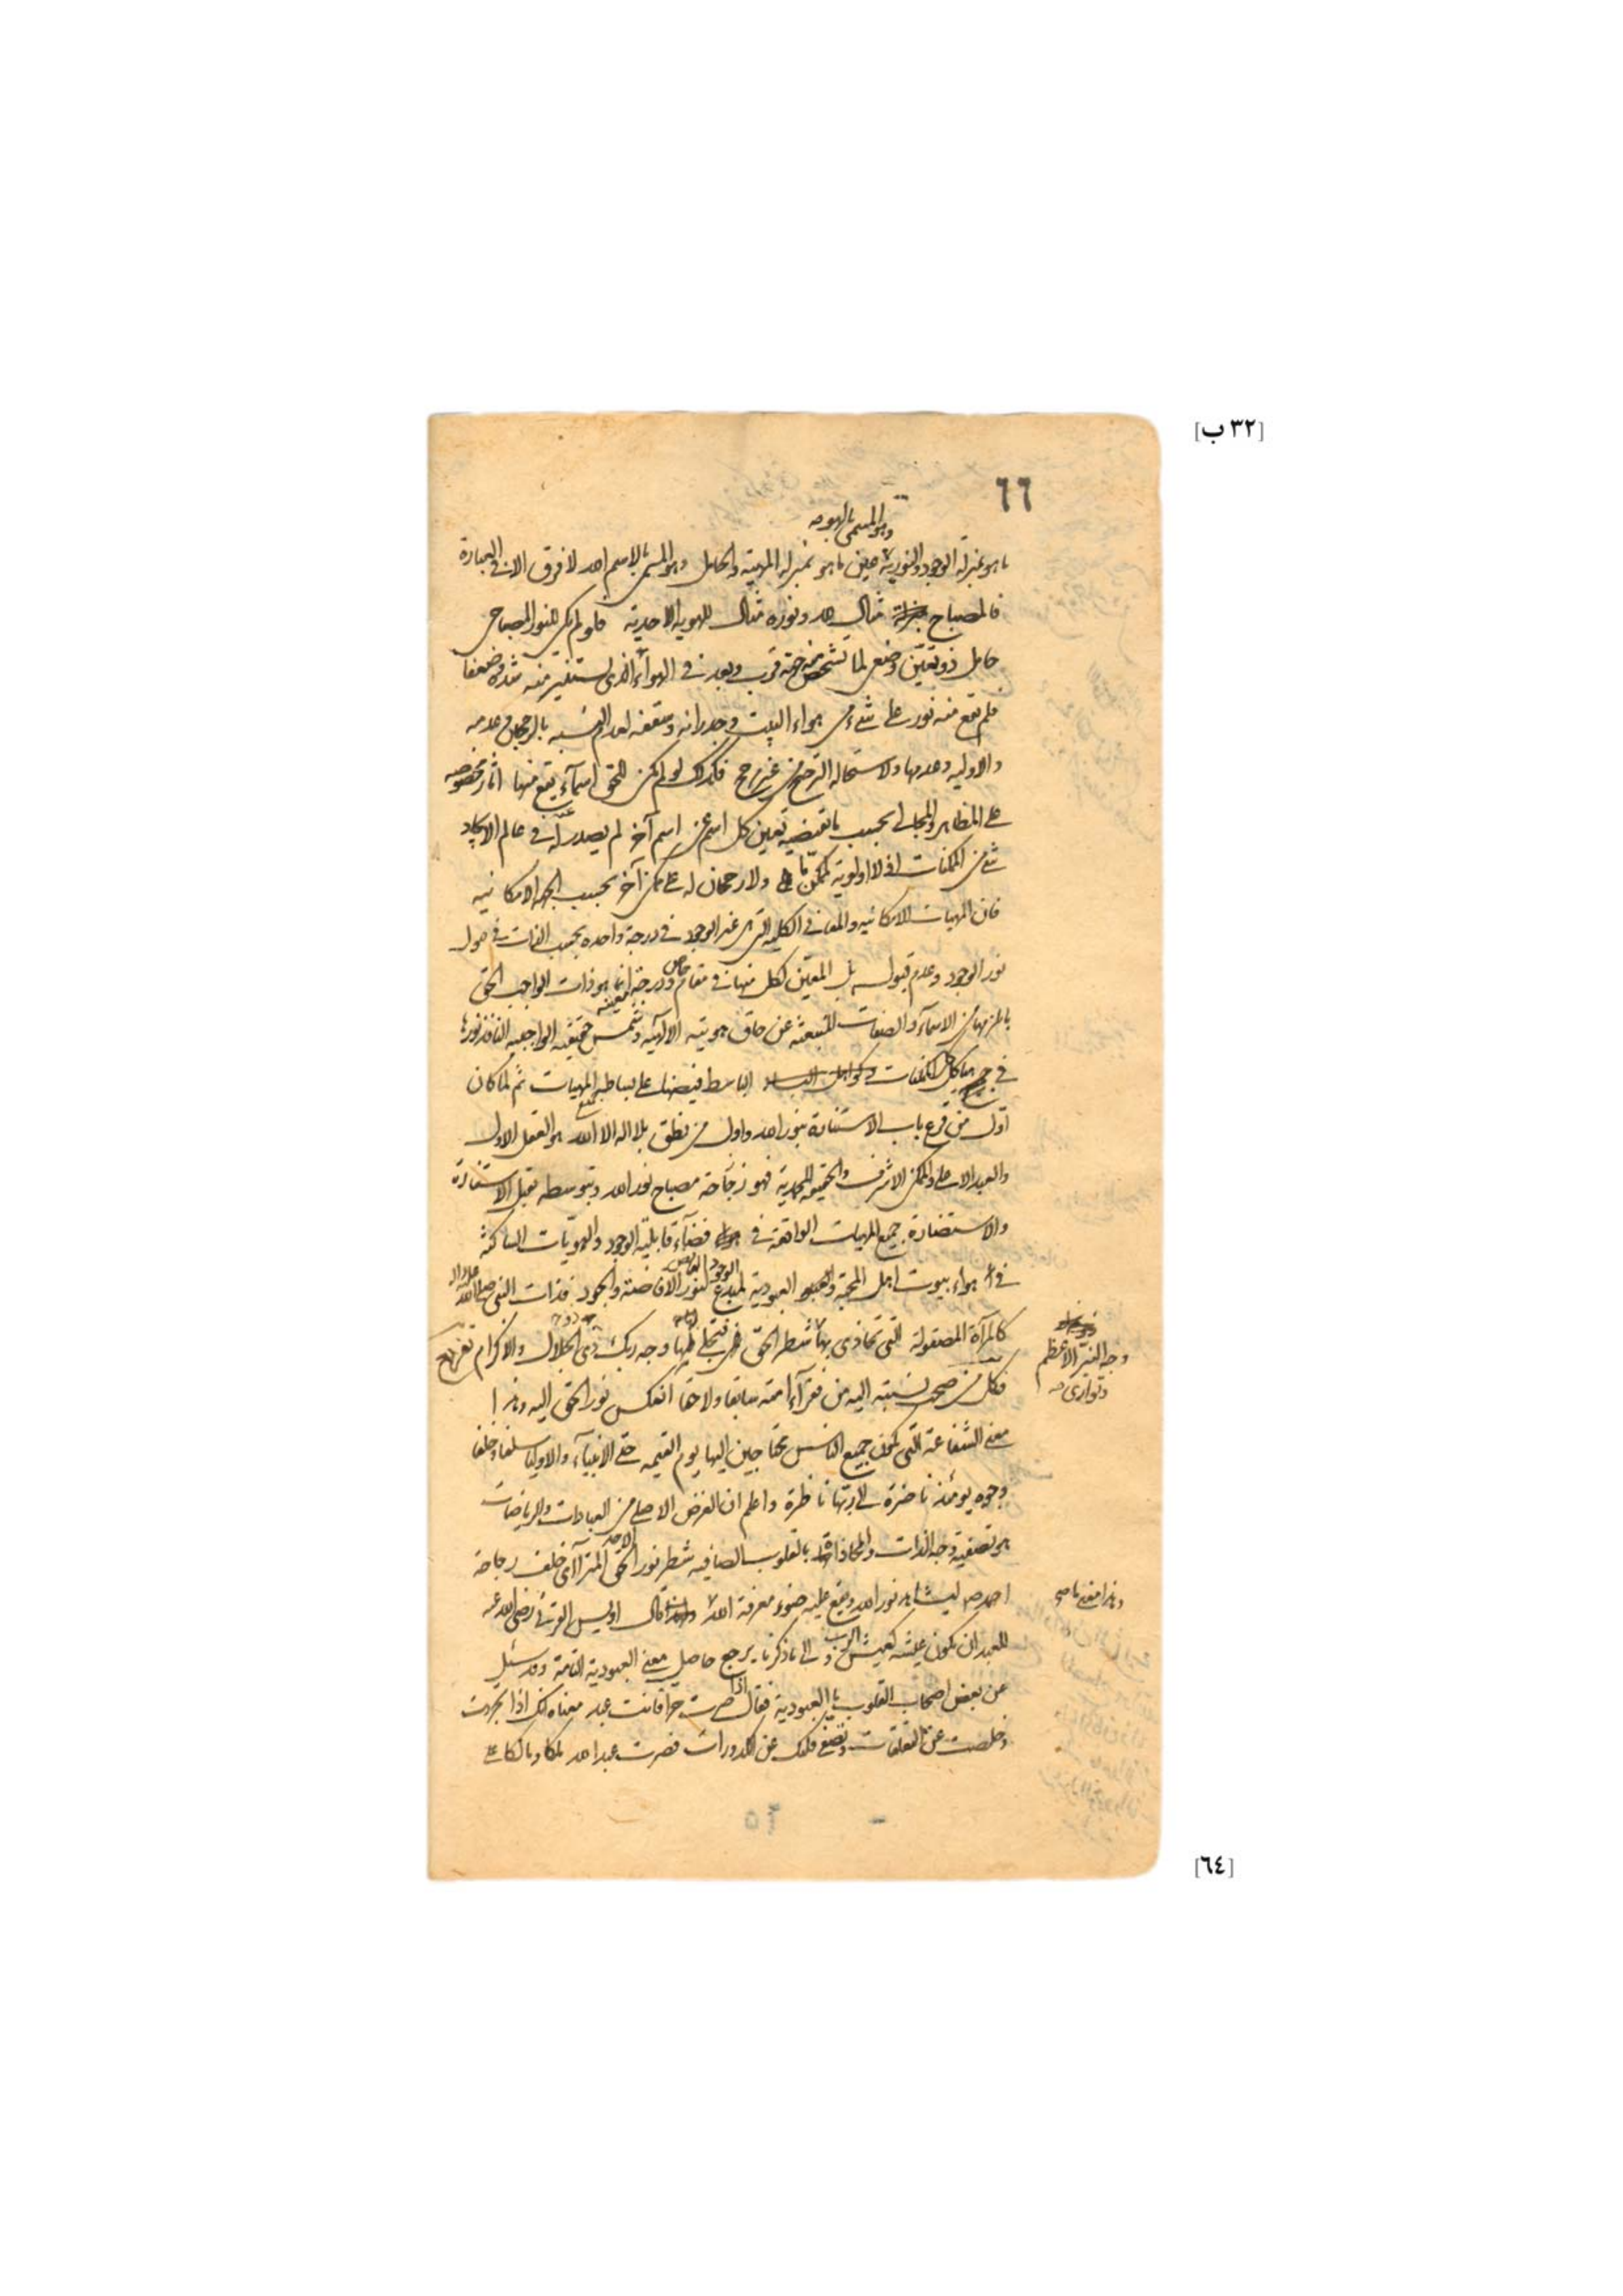 [٣٢ ب]
٦٦
وهو المسمى بالهوية
ما هو بمنزلة الوجود والنورية عين ما هو بمنزلة المهية والحامل وهو المسمى بالاسم الله لا فرق الا في العبارة
فالمصباح مثال الله ونوره مثال للهوية الاحدية فلو لم يكن للنور المصباحي
حامل ذو تعين وضعي لما تشخص منه جهة قرب وبعد في الهواء الذي يستنير منه شدة وضعفا
فلم يقع منه نور على شيء من هواء البيت وجدرانه وسقفه لعدم النسبة بالرجحان وعدمه
والاولية وعدمها ولاستحالة الترجيح من غير مرجح فكذلك لو لم يكن للحق اسماء يقع منها اثار مخصوصة
على المظاهر والمجالي بحسب ما تقتضيه تعين كل اسم عن اسم آخر لم يصدر عنه في عالم الايجاد
شيء من الممكنات اذ لا اولوية لممكن ما ولا رجحان له على ممكن آخر بحسب الجهة الامكانية
فان المهيات الامكانية والمعاني الكلية التي هي غير الوجود في درجة واحدة بحسب الذات في قبول
نور الوجود وعدم قبوله بل المعين لكل منها في مقام خاص ودرجة معينة انما هو ذات الواجب الحق
بالزمها من الاسماء والصفات المنبعثة عن حاق هويته الالهية وشمس حقيقته الواجبية النافذ نورها
في جميع هياكل الممكنات الباسط فيضها على بسائط المهيات ثم لما كان
اول من قرع باب الاستنارة بنور الله واول من نطق بلا اله الا الله هو العقل الاول
والعبد الاعلى والممكن الاشرف والحقيقة المحمدية فهو زجاجة مصباح نور الله وبتوسطه تقبل الاستنارة
والاستضاءة جميع المهيات الواقعة في فضاء قابلية الوجود والهويات الساكنة
في هواء بيوت اهل المحبة والعبودية لمبدع الوجود الفائض لنور الافاضة والجود فذات النبي صلى الله عليه وآله
كالمرآة المصقولة التي تحاذي بها شطر الحق فيتجلى فيها وجه ربك ذي الجلال والاكرام
وجه النير الاعظم
وتوازي صح
فكل من صحت نسبته اليه من فقراء امته سابقا ولاحقا انعكس نور الحق اليه وهذا
معنى الشفاعة التي يكون جميع الناس محتاجين اليها يوم القيمة حتى الانبياء والاولياء سلفا وخلفا
وجوه يومئذ ناضرة الى ربها ناظرة واعلم ان الغرض الاصلي من العبادات والرياضات
هو تصفية وجه الذات والمحاذاة بالقلوب الصافية شطر نور الحق الاحد المترائي خلف زجاجة
احمد ص ليشاهد نور الله ويقع عليه ضوء معرفة الله قال اويس القرني رضي الله عنه
للعبد ان يكون عيشه كعيش الرب والى ما ذكرنا يرجع حاصل معنى العبودية التامة وقد سئل
عن بعض اصحاب القلوب ما العبودية فقال اذا صرت حرا فانت عبد معناه انك اذا تجردت
وخلصت عن التعلقات وتصفى قلبك عن الكدورات فصرت عبد الله
٥٢
[٦٤]